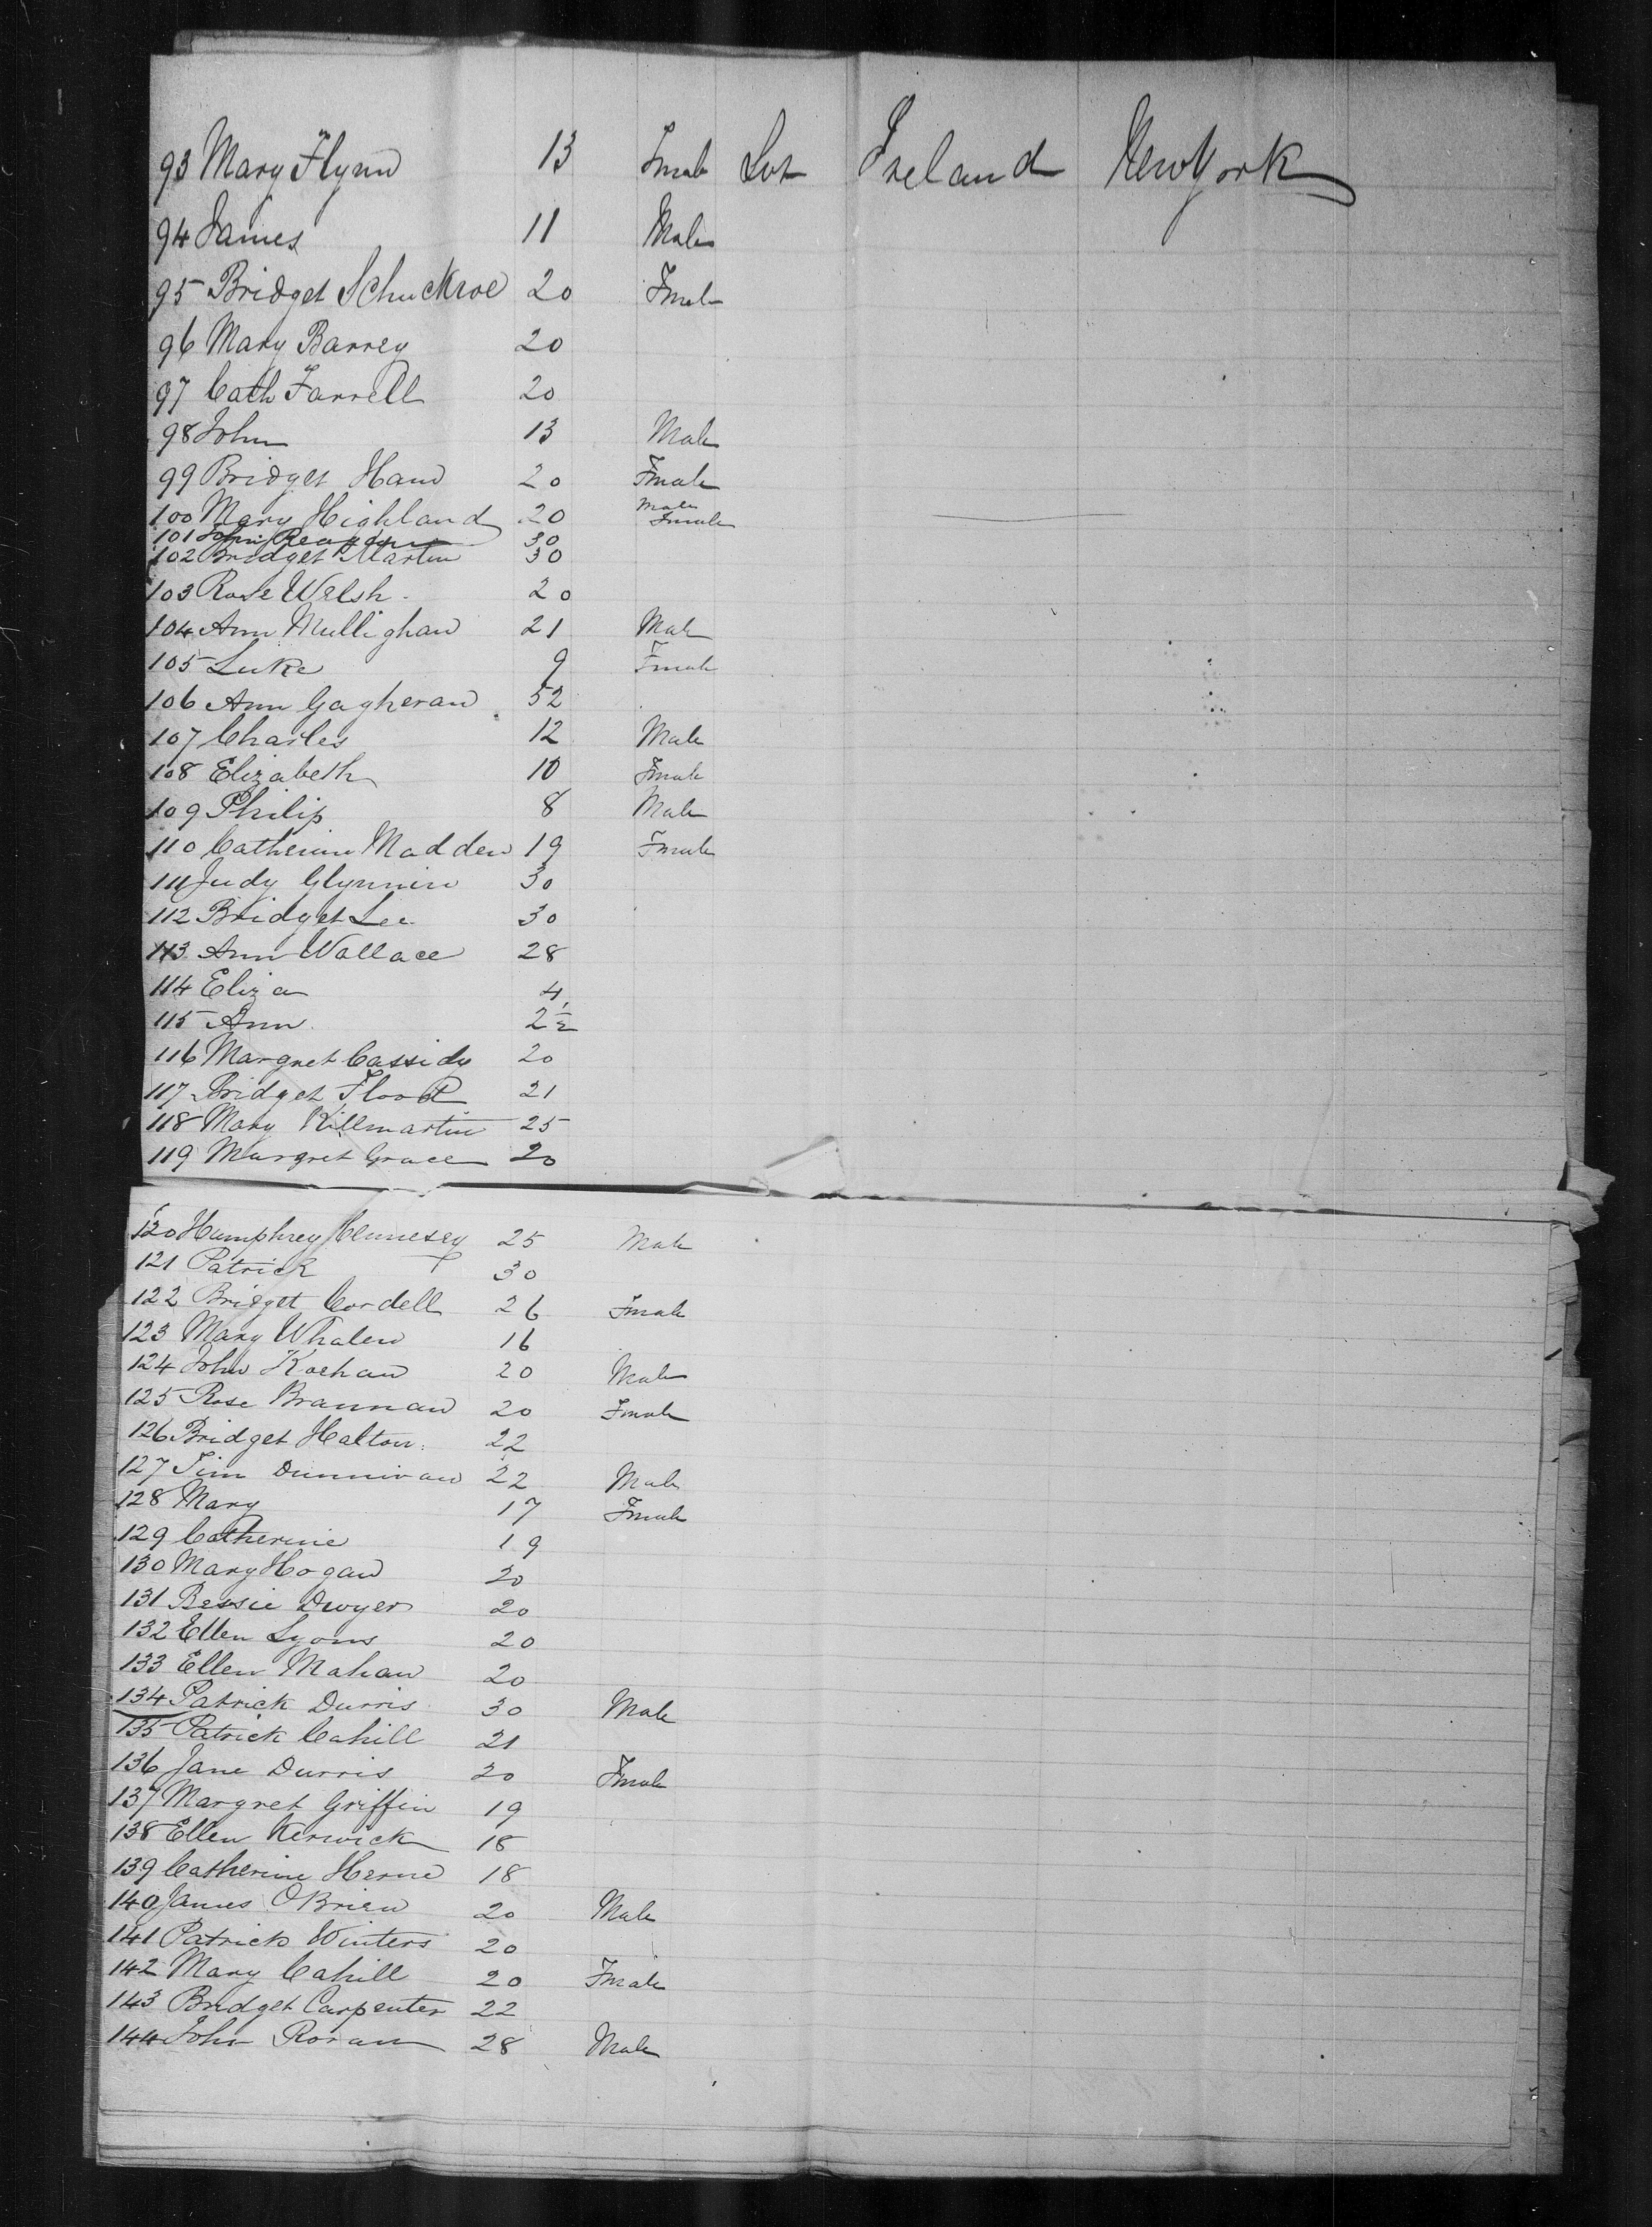 93 Mary Flynn 13 Fmale Lot Ireland New York
94 James 11 Male
95 Bridget 20 Fmale
96 Mary Barrey 20
97 Cath Farrell 20
98 John 13 Male
99 Bridget Haw 20 Fmale
100 Mary Highland 20 Male
Fmale
101 John Reardon 30
102 Bridget Martin 30
103 Rose Welsh 20
104 Ann Mullighan 21 Male
105 Luke 9 Fmale
106 Ann Gagheran 52
107 Charles 12 Male
108 Elizabeth 10 Fmale
109 Philip 8 Male
110 Catherine Madden 19 Fmale
111 Judy Glynnin 30
112 Bridget Lee 30
113 Ann Wallace 28
114 Eliza 4
115 Ann 2½
116 Margret Cassidy 20
117 Bridget Flood 21
118 Mary Killmartin 25
119 Margret Grace 20
120 Humphrey Hennesey 25 Male
121 Patrick 30
122 Bridget Cordell 26 Fmale
123 Mary Whalen 16
124 John Keehan 20 Male
125 Rose Brannan 20 Fmale
126 Bridget Halton 22
127 Tim Dunnivan 22 Male
128 Mary 17 Fmale
129 Catherine 19
130 Mary Hogan 20
131 Bessie Dwyer 20
132 Ellen Lyons 20
133 Ellen Mahan 20
134 Patrick Durris 30 Male
135 Patrick Cahill 21
136 Jane Durris 20 Fmale
137 Margret Griffin 19
138 Ellen Kerwick 18
139 Catherine Herne 18
140 James OBrien 20 Male
141 Patrick Winters 20
142 Mary Cahill 20 Fmale
143 Bridget Carpenter 22
144 John Roran 28 Male